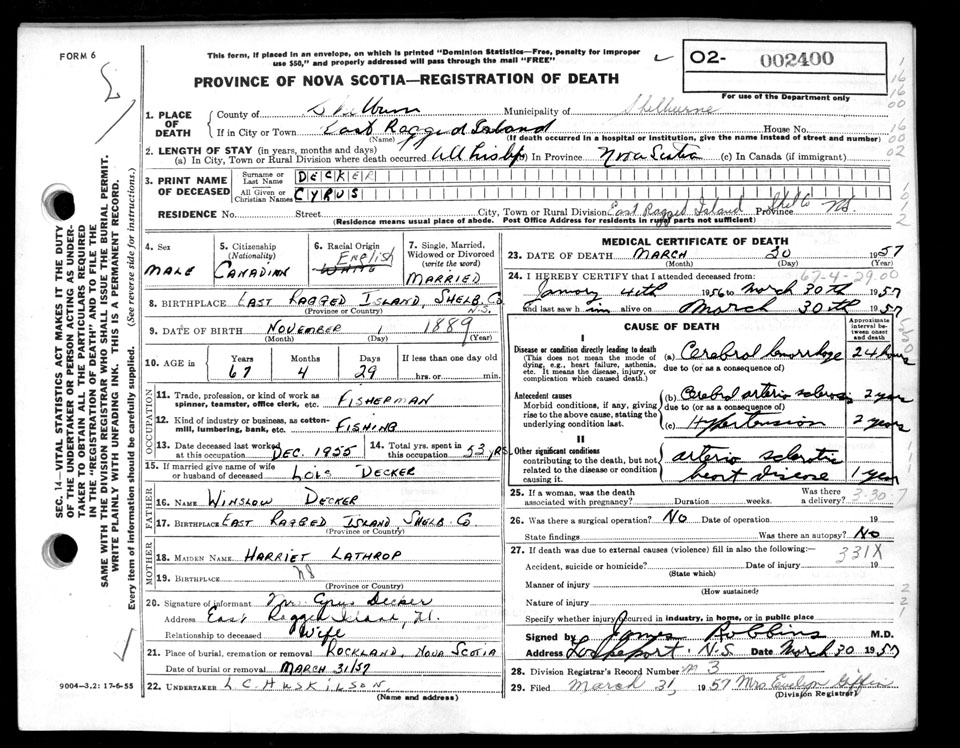 FORM 6
This form, if placed in an envelope, on which is printed "Dominion Statistics—Free, penalty for improper
use $50," and properly addressed will pass through the mail "FREE"
PROVINCE OF NOVA SCOTIA—REGISTRATION OF DEATH
O2- 002400
For use of the Department only
SEC. 14—VITAL STATISTICS ACT MAKES IT THE DUTY
OF THE UNDERTAKER OR PERSON ACTING AS UNDER-
TAKER TO OBTAIN ALL THE PARTICULARS REQUIRED
IN THE "REGISTRATION OF DEATH" AND TO FILE THE
SAME WITH THE DIVISION REGISTRAR WHO SHALL ISSUE THE BURIAL PERMIT.
WRITE PLAINLY WITH UNFADING INK. THIS IS A PERMANENT RECORD.
Every item of information should be carefully supplied. (See reverse side for instructions.)
1. PLACE OF DEATH
County of Shelburne Municipality of Shelburne
If in City or Town East Ragged Island House No.
(Name) (If death occurred in a hospital or institution, give the name instead of street and number)
2. LENGTH OF STAY (in years, months and days)
(a) In City, Town or Rural Division where death occurred All his life (b) In Province Nova Scotia (c) In Canada (if immigrant)
3. PRINT NAME OF DECEASED
Surname or Last Name DECKER
All Given or Christian Names CYRUS
RESIDENCE No. Street City, Town or Rural Division East Ragged Island Shel Co Province NS.
(Residence means usual place of abode. Post Office Address for residents in rural parts not sufficient)
4. Sex
MALE
5. Citizenship (Nationality)
CANADIAN
6. Racial Origin
English
WHITE
7. Single, Married, Widowed or Divorced (write the word)
MARRIED
8. BIRTHPLACE EAST RAGGED ISLAND, SHELB. CO. N.S.
(Province or Country)
9. DATE OF BIRTH NOVEMBER 1 1889
(Month) (Day) (Year)
10. AGE IN
Years Months Days If less than one day old
67 4 29 hrs. or min.
OCCUPATION
11. Trade, profession, or kind of work as spinner, teamster, office clerk, etc. FISHERMAN
12. Kind of industry or business, as cotton-mill, lumbering, bank, etc. FISHING
13. Date deceased last worked at this occupation DEC. 1955
14. Total yrs. spent in this occupation 53 YRS.
15. If married give name of wife or husband of deceased LOIS DECKER
FATHER
16. NAME WINSLOW DECKER
17. BIRTHPLACE EAST RAGGED ISLAND SHELB. CO.
(Province or Country)
MOTHER
18. MAIDEN NAME HARRIET LATHROP
19. BIRTHPLACE NS
(Province or Country)
20. Signature of informant Mrs. Cyrus Decker
Address East Ragged Island,
Relationship to deceased Wife
21. Place of burial, cremation or removal ROCKLAND, NOVA SCOTIA
Date of burial or removal MARCH 31/57
22. UNDERTAKER L C HUSKILSON
(Name and address)
9004—3.2: 17-6-55
MEDICAL CERTIFICATE OF DEATH
23. DATE OF DEATH MARCH 30 1957
(Month) (Day) (Year)
67-4-29.00
24. I HEREBY CERTIFY that I attended deceased from:
January 4th 1956 to March 30th 1957
and last saw him alive on March 30th 1957
CAUSE OF DEATH
Approximate interval between onset and death
I
Disease or condition directly leading to death
(This does not mean the mode of dying, e.g., heart failure, asthenia, etc. It means the disease, injury, or complication which caused death.)
(a) Cerebral hemorrhage 24 hours
due to (or as a consequence of)
Antecedent causes
Morbid conditions, if any, giving rise to the above cause, stating the underlying condition last.
(b) Cerebral arterio sclerosis 2 years
due to (or as a consequence of)
(c) Hypertension 2 years
II
Other significant conditions contributing to the death, but not related to the disease or condition causing it.
arterio sclerotic
heart disease 1 year
25. If a woman, was the death associated with pregnancy? Duration weeks. Was there a delivery?
3-30-7
26. Was there a surgical operation? No Date of operation 19
State findings Was there an autopsy? No
27. If death was due to external causes (violence) fill in also the following:—
331X
Accident, suicide or homicide? Date of injury 19
(State which)
Manner of injury
(How sustained)
Nature of injury
Specify whether injury occurred in industry, in home, or in public place
Signed by James Robbins M.D.
Address Lockeport N.S. Date March 30 1957
28. Division Registrar's Record Number 3
29. Filed March 31, 1957 Mrs Evelyn Giffin
(Division Registrar)